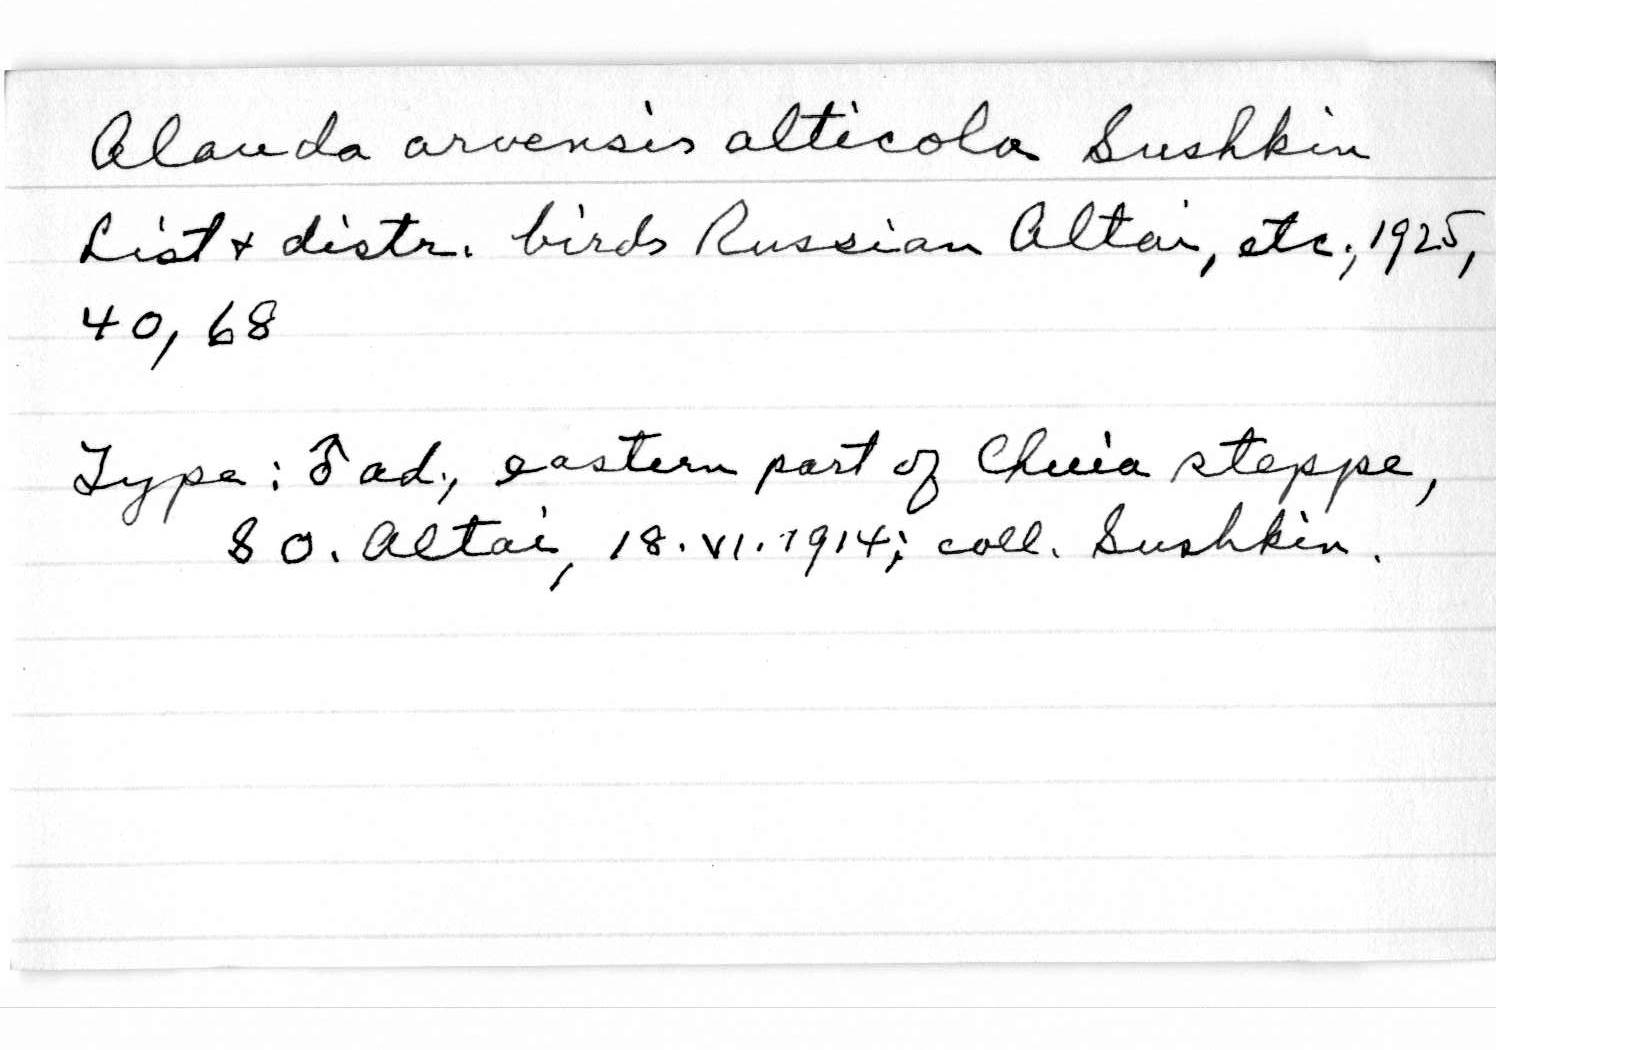 Alauda arvensis alticola Sushkin
List & distr. birds Russian Altai, etc., 1925,
40, 68
Type: ♂ ad., eastern part of Chuia steppe,
SO. Altai, 18.VI.1914; coll. Sushkin.